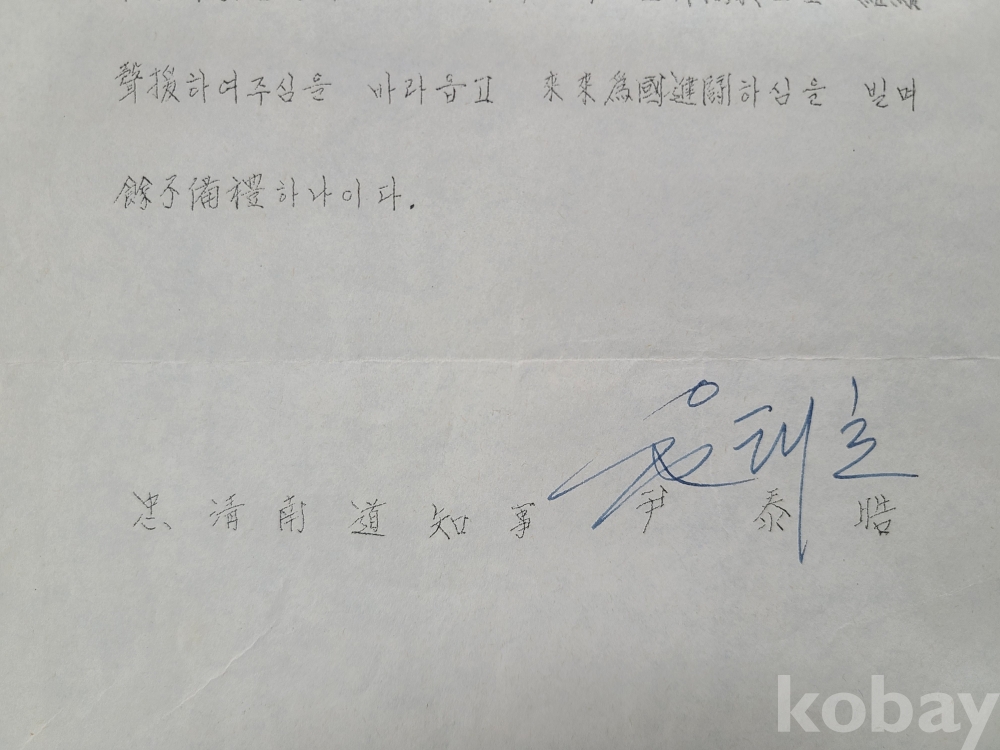 聲援하여주심을 바라옵고 來來爲國進鬪하심을 빌며
餘不備禮하나이다.
윤태호
忠淸南道知事 尹泰皓
kobay